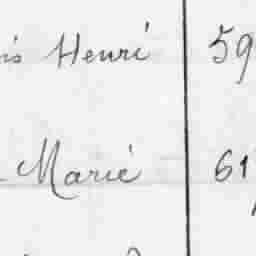 is Henri 59
Marie 61